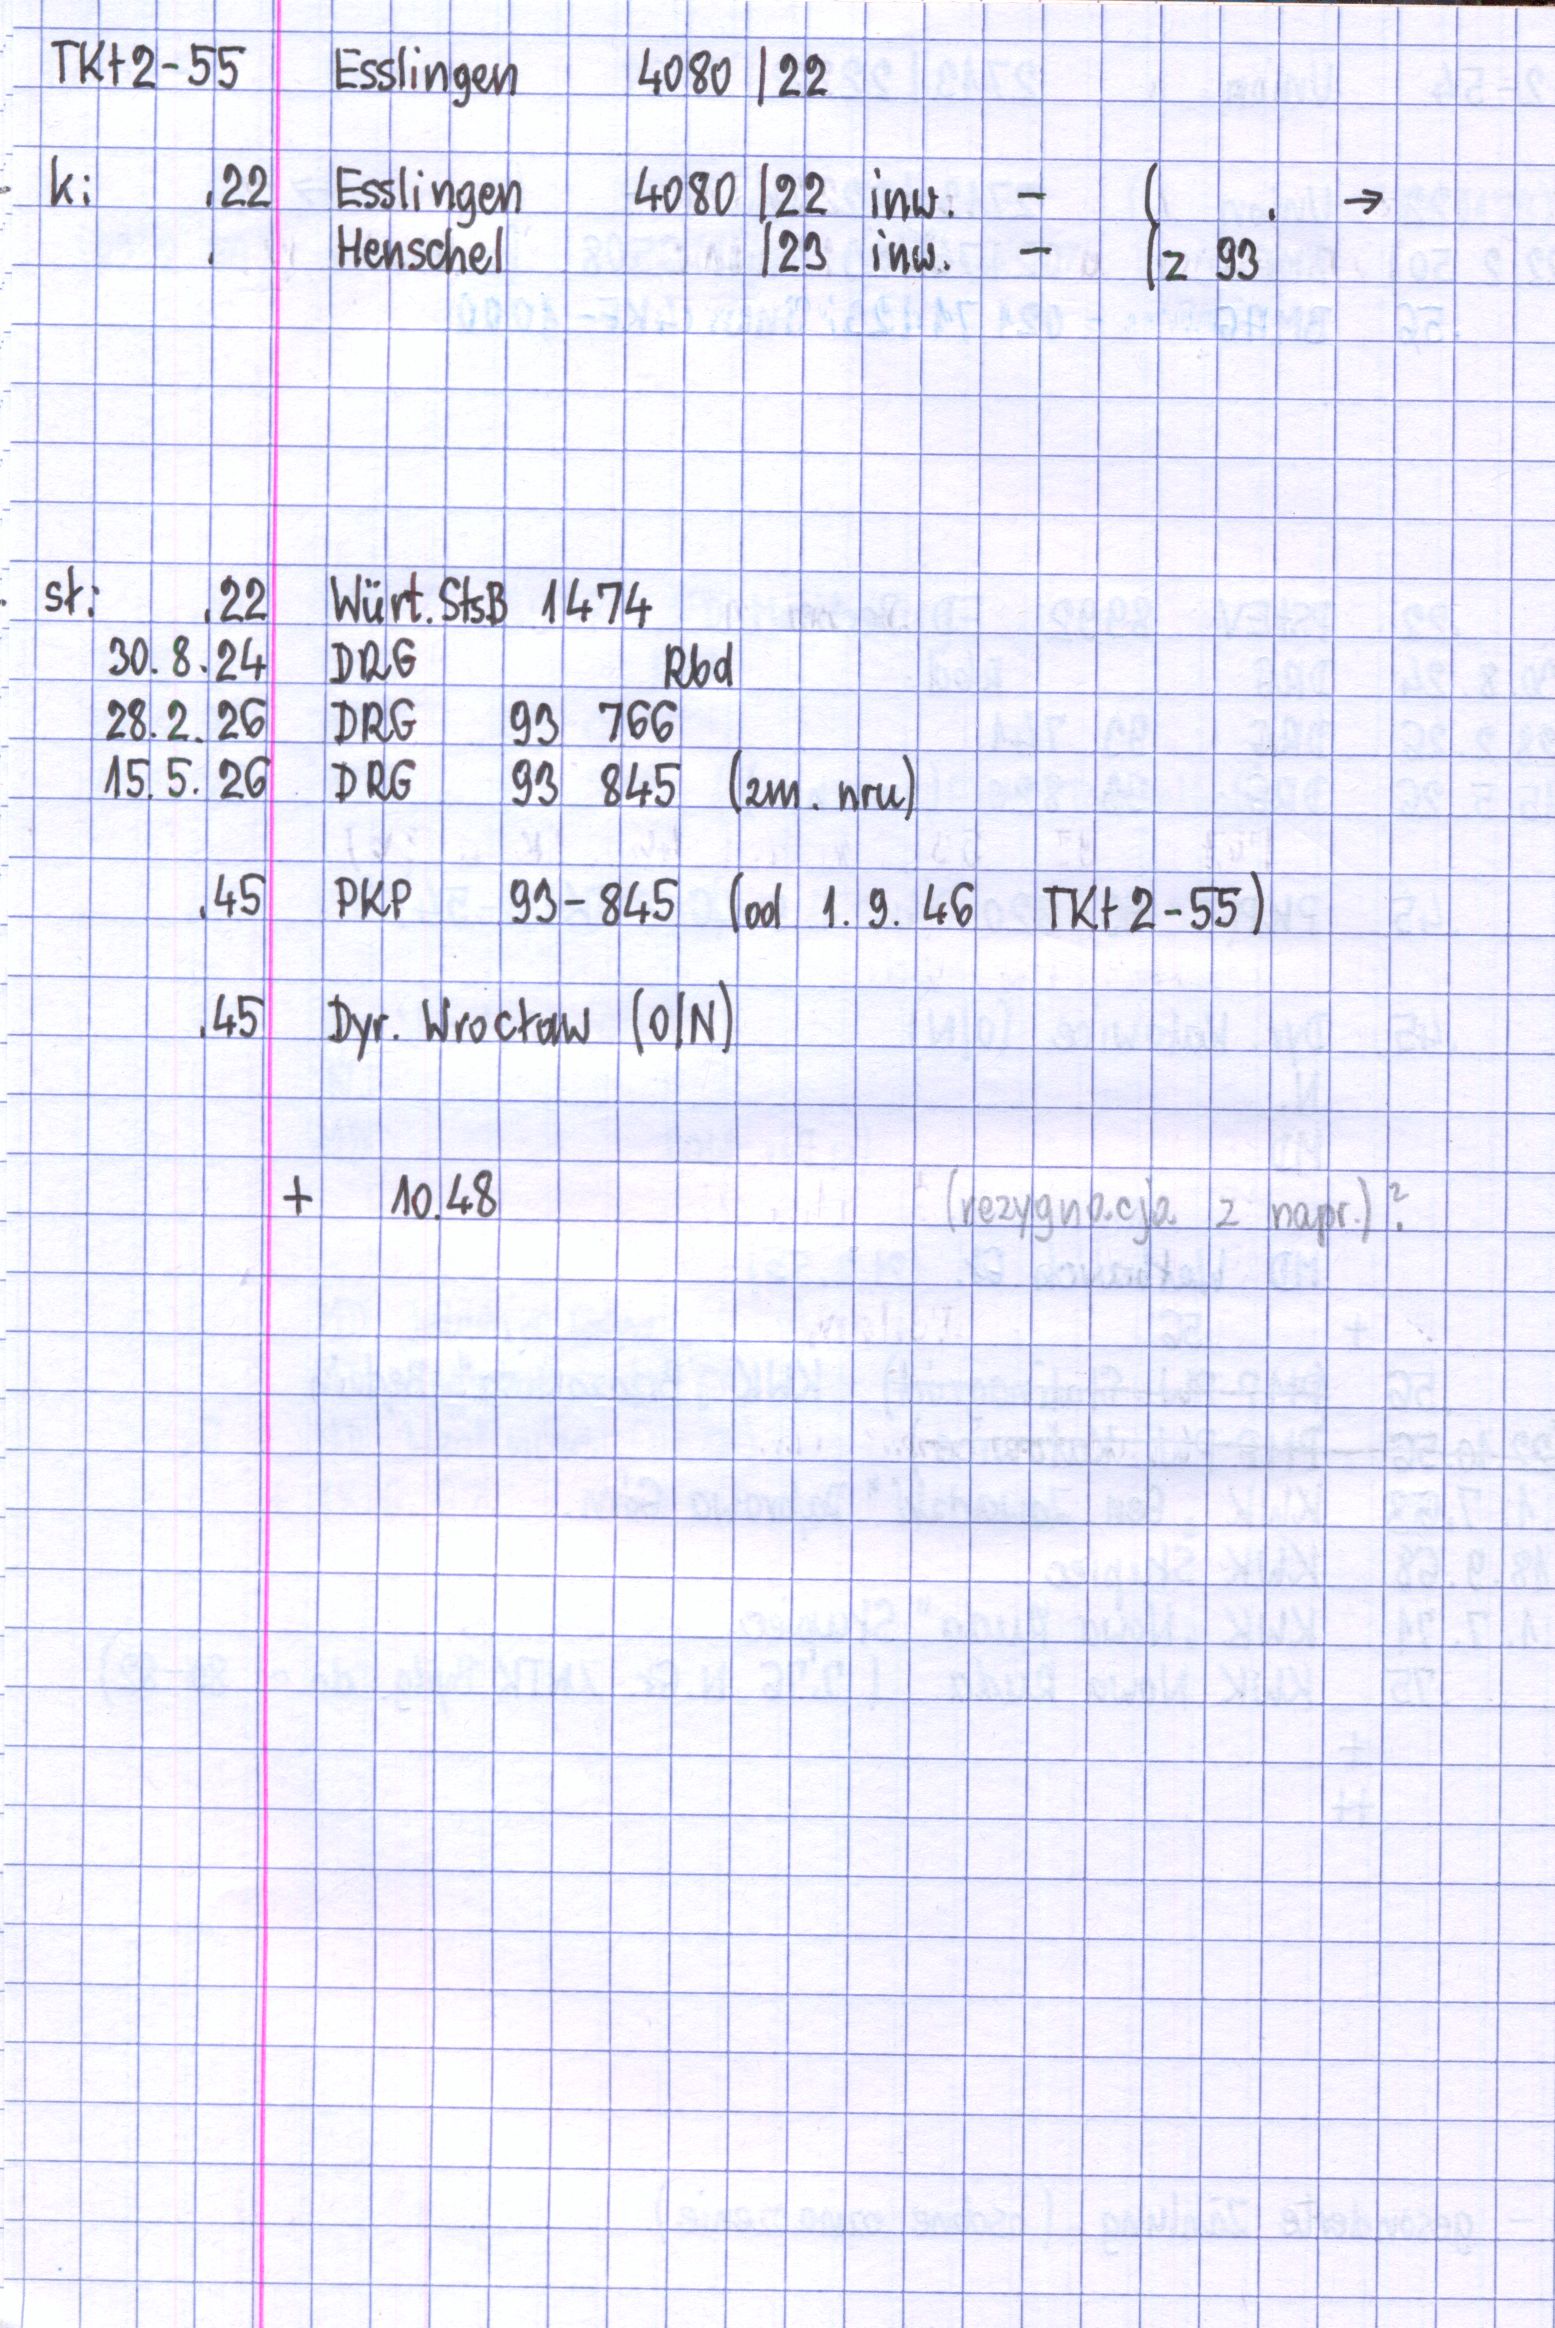 TKt2-55 Esslingen 4080 /22
k: .22 Esslingen 4080 /22 inw. - ( . →
. Henschel /23 inw. - (z 93
st: .22 Würt. StsB 1474
30.8.24 DRG Rbd
28.2.26 DRG 93 766
15.5.26 DRG 93 845 (zm. nru)
.45 PKP 93-845 (od 1.9.46 TKt2-55)
.45 Dyr. Wrocław (O/N)
+ 10.48 (rezygnacja z napr.)?